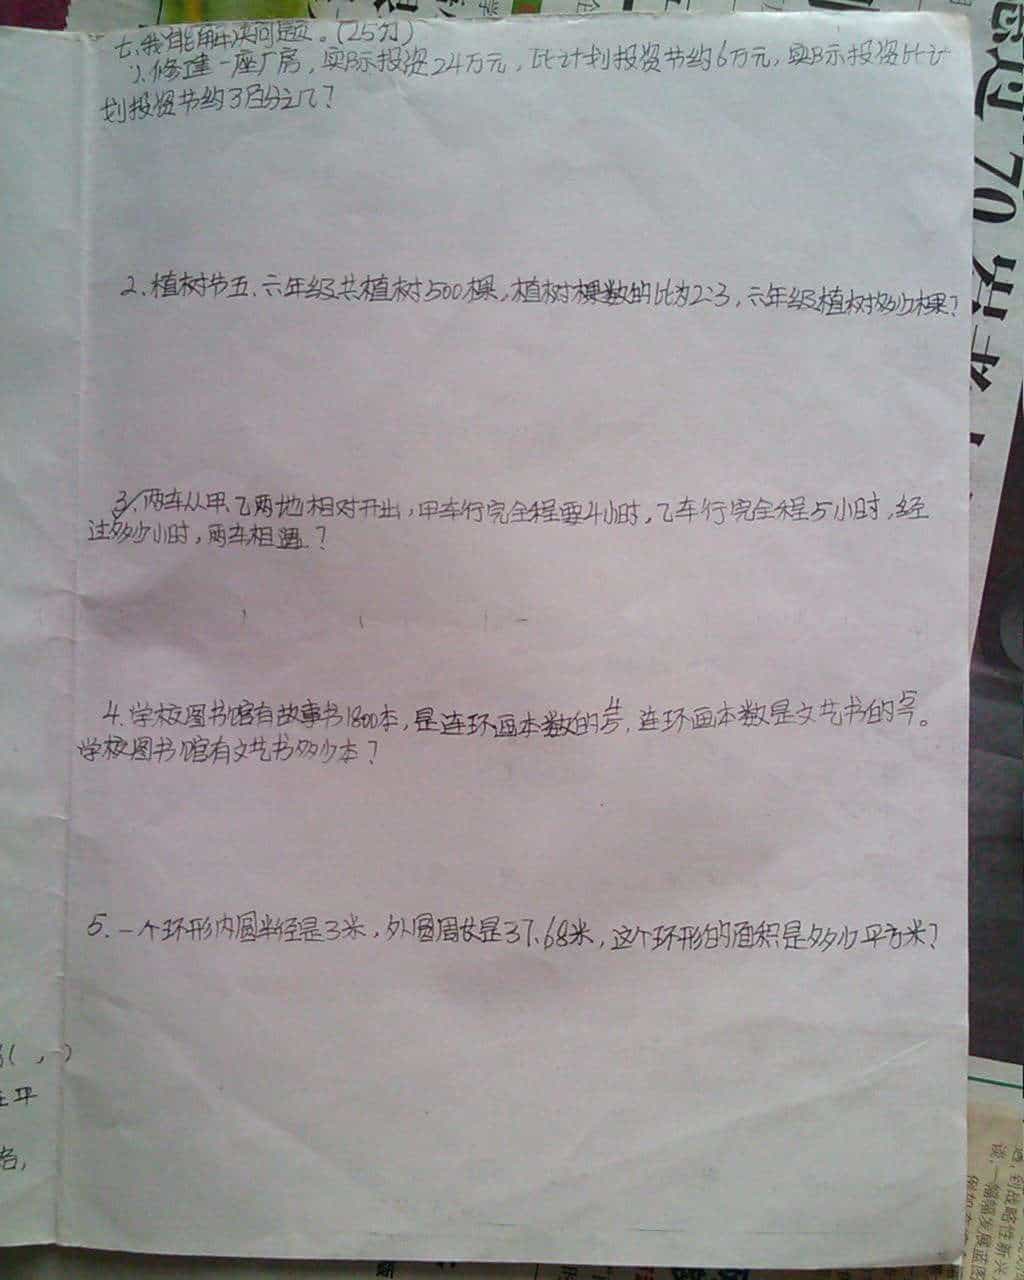 七、我能解决问题。(25分)
1、修建一座厂房,实际投资24万元,比计划投资节约6万元,实际投资比计
划投资节约了百分之几?
2、植树节五、六年级共植树500棵,植树棵数的比为2:3,六年级植树多少棵?
3、两车从甲、乙两地相对开出,甲车行完全程要4小时,乙车行完全程5小时,经
过多少小时,两车相遇?
4、学校图书馆有故事书1800本,是连环画本数的,连环画本数是文艺书的。
学校图书馆有文艺书多少本?
5、一个环形内圆半径是3米,外圆周长是37.68米,这个环形的面积是多少平方米?
过
70岁